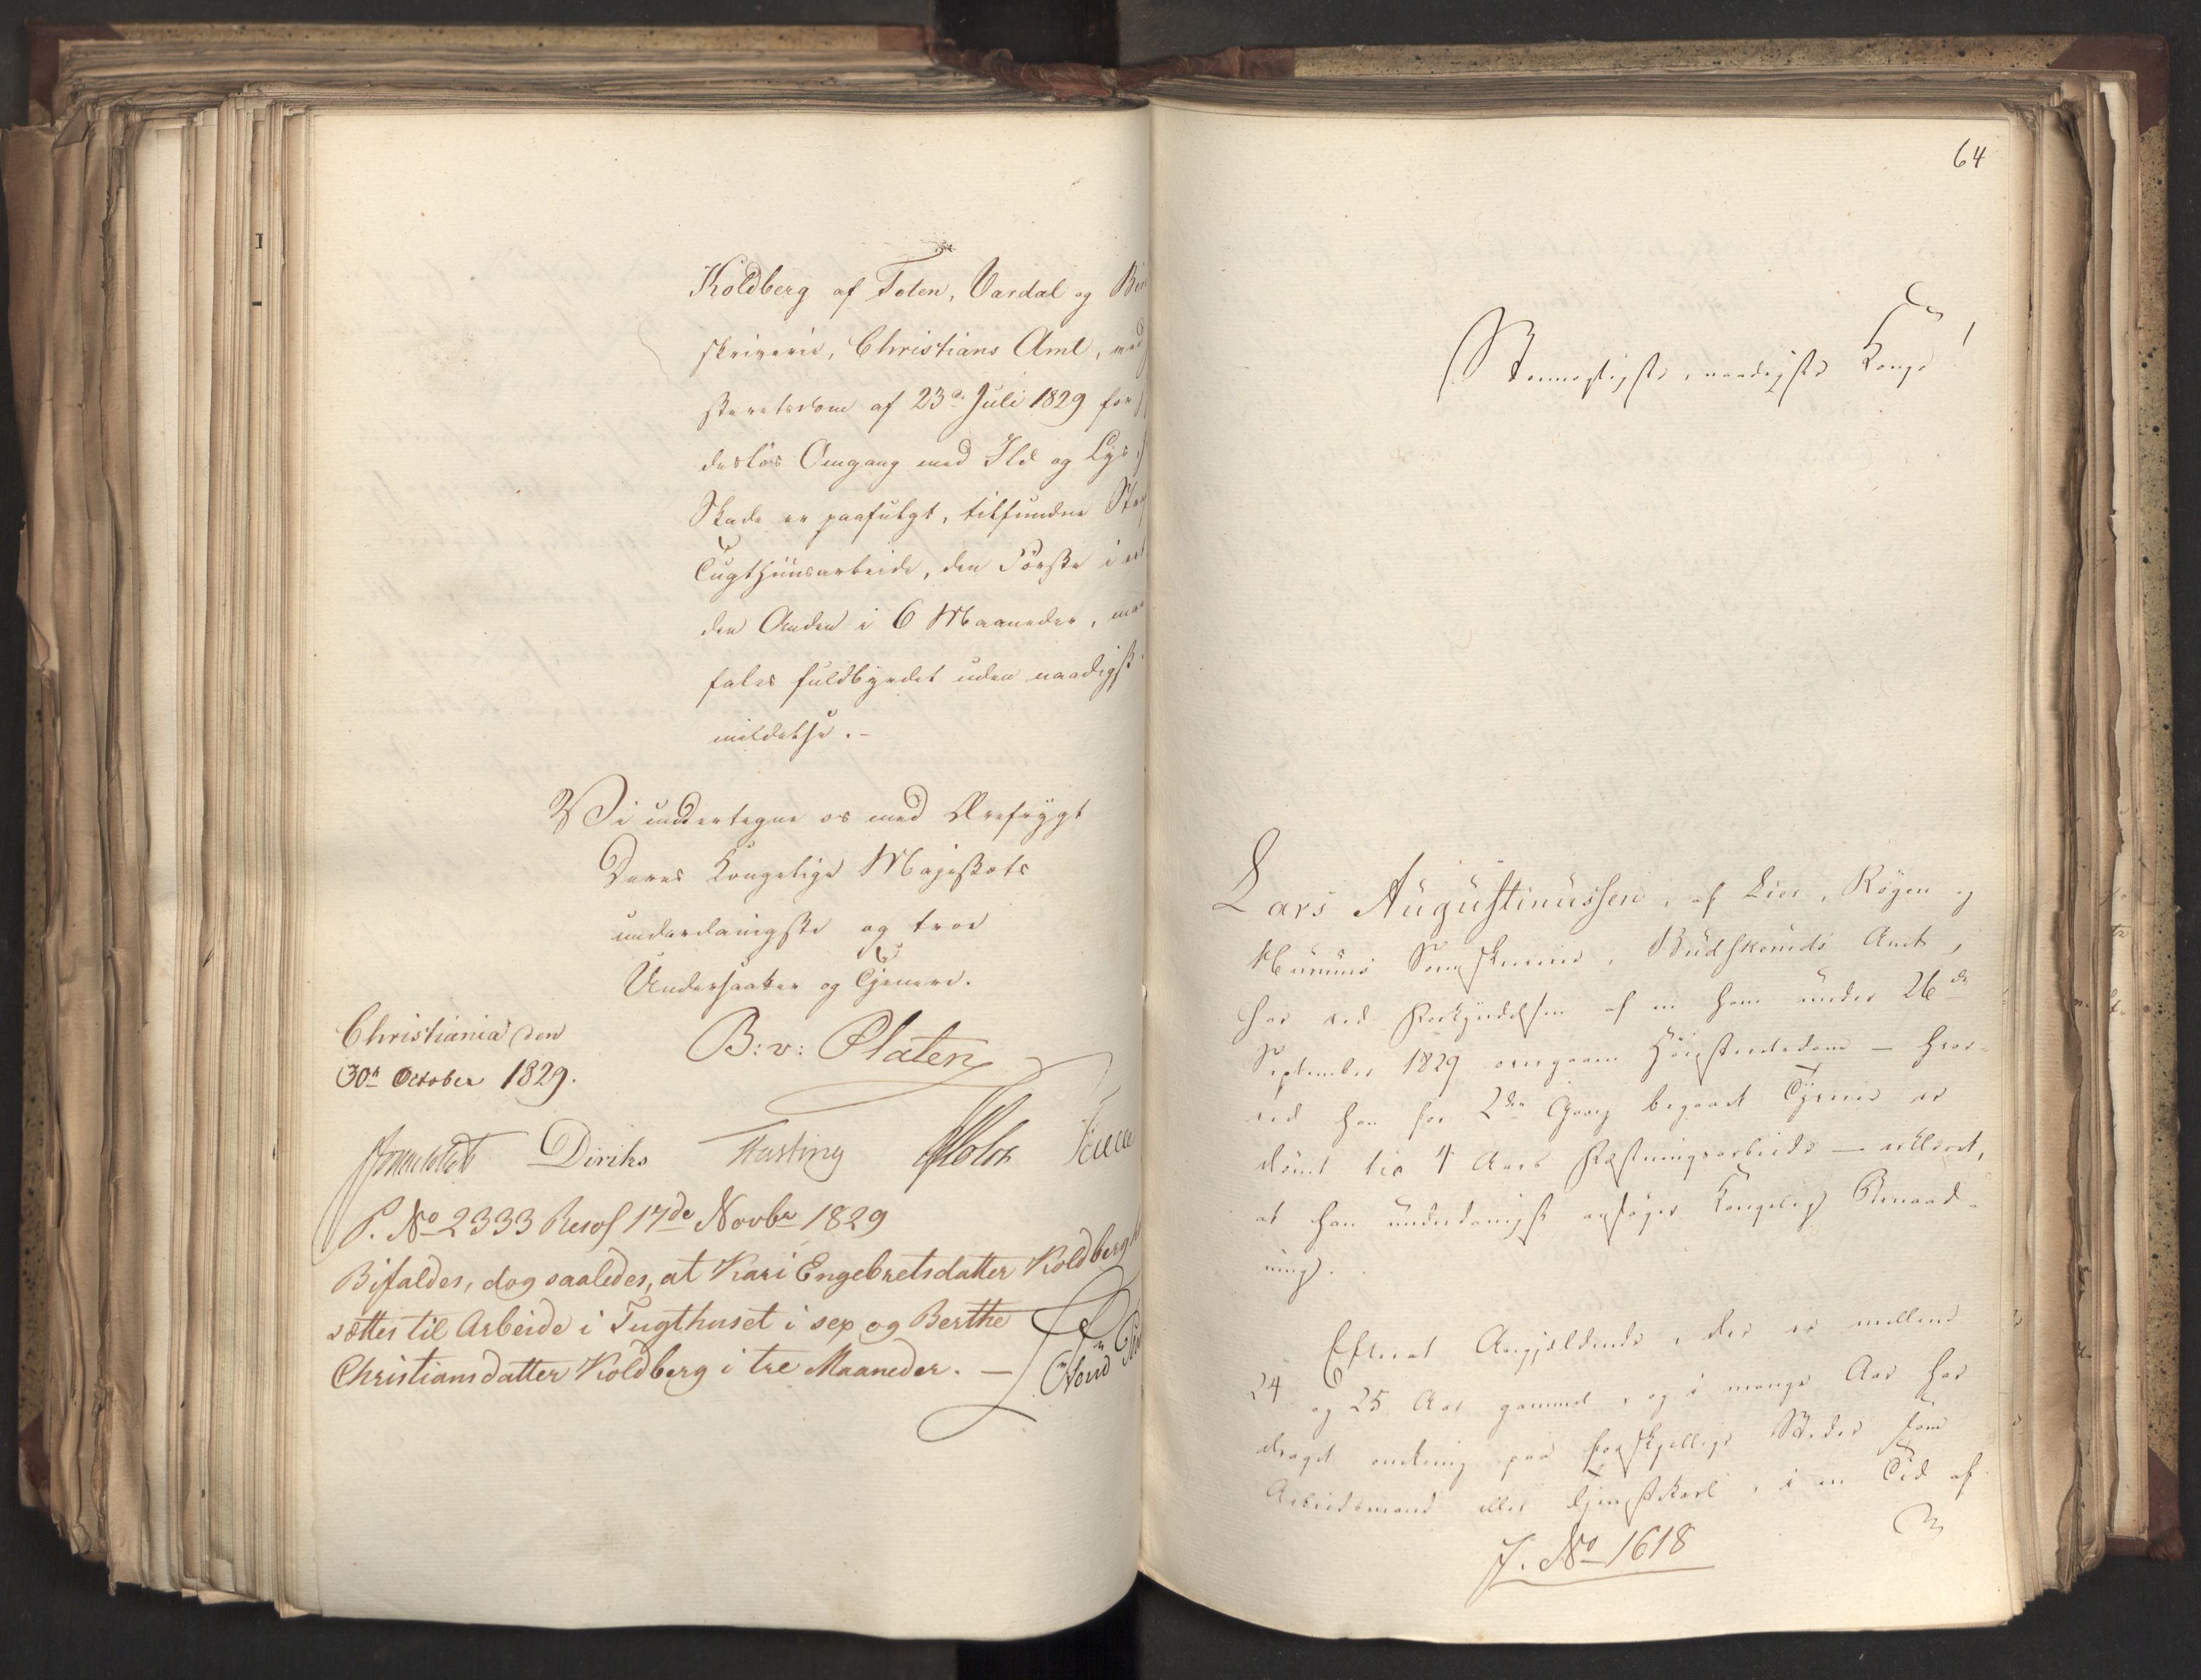 Koldberg af Toten, Vardal og Bi
skriverie, Christians Amt, ved
steretsdom af 23de Juli 1829 for
desløs Omgang med Ild og Lys,
Skade er paafulgt, tilfundne Stra
Tugthuusarbeide, den Første i et
den Anden i 6 Maaneder, maa
fales fuldbyrdet uden naadigst
mildelse. -
Vi undertegne os med Ærefrygt
Deres Kongelige Majestæts
underdanigste og troe
Undersaatter og Tjenere.
Christiania den
30te October 1829.
B: v: Platen
Diriks Fasting Holst
P. No 2333 Resol 17de Novbr 1829
Bifaldes, dog saaledes, at Kari Engebretsdatter Koldberg
sættes til Arbeide i Tugthuset i sex og Berthe
Christiansdatter Koldberg i tre Maaneder. —
64
Stormægtigste, naadigste Konge!
Lars Augustinussen, af Lier, Røgen og
Hurums Sorenskriverie, Budskeruds Amt,
har ved Forkyndelsen af en ham under 26de
September 1829 overgaaen Høiesteretsdom — hvor-
ved han for 2den Gang begaaet Tyverie er
dømt til 4 Aars Fæstningsarbeide — erklæret,
at han underdanigst ansøger Kongelig Benaad-
ning.
Efterat Angjældende, der er mellem
24 og 25 Aar gammel, og i mange Aar har
draget omkring paa forskjellige Steder som
Arbeidsmand eller Tjenstekarl, i en Tid af
J. No 1618